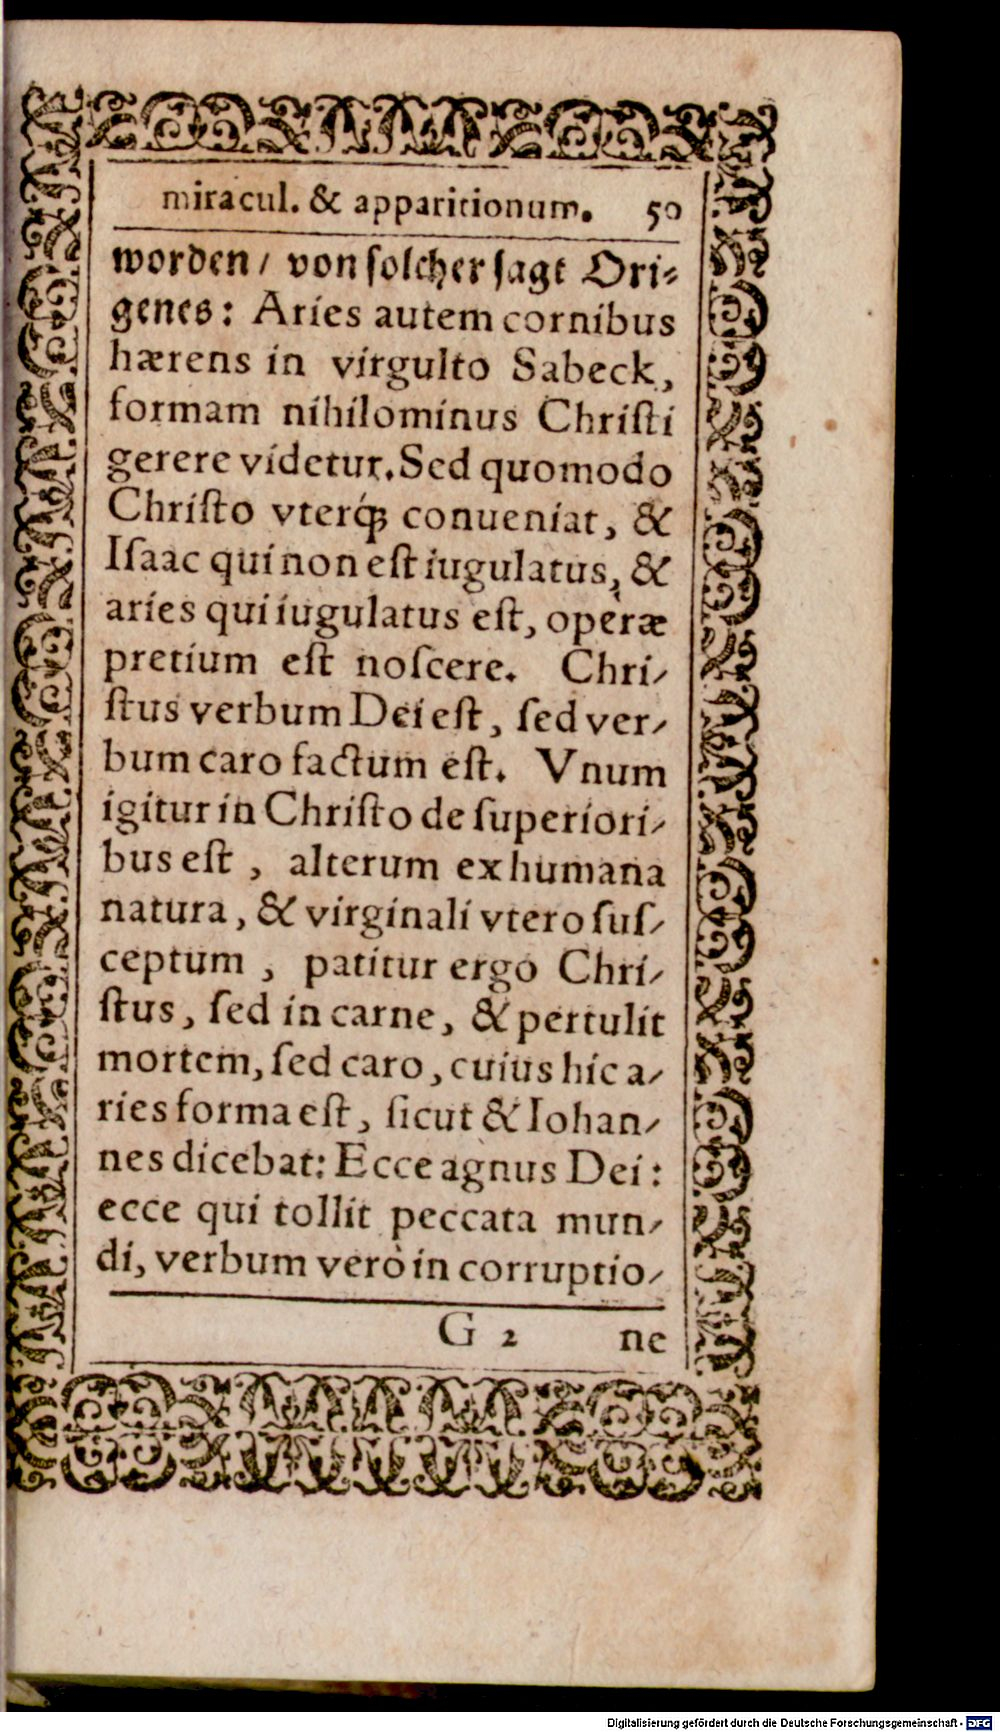 miracul. & apparitionum. 50
worden / von ſolcher ſagt Ori⸗
genes: Aries autem cornibus
hærens in virgulto Sabeck,
formam nihilominus Chriſti
gerere videtur. Sed quomodo
Chriſto vterq́ꝫ conueniat, &
Iſaac qui non eſt iugulatus, &
aries qui iugulatus eſt, operæ
pretium eſt noſcere. Chri-
ſtus verbum Dei eſt, ſed ver-
bum caro factum eſt. Vnum
igitur in Chriſto de ſuperiori-
bus eſt, alterum ex humana
natura, & virginali vtero ſuſ-
ceptum, patitur ergo Chri-
ſtus, ſed in carne, & pertulit
mortem, ſed caro, cuius hic a-
ries forma eſt, ſicut & Iohan-
nes dicebat: Ecce agnus Dei:
ecce qui tollit peccata mun-
di, verbum verò in corruptio-
G 2 ne
Digitalisierung gefördert durch die Deutsche Forschungsgemeinschaft - DFG